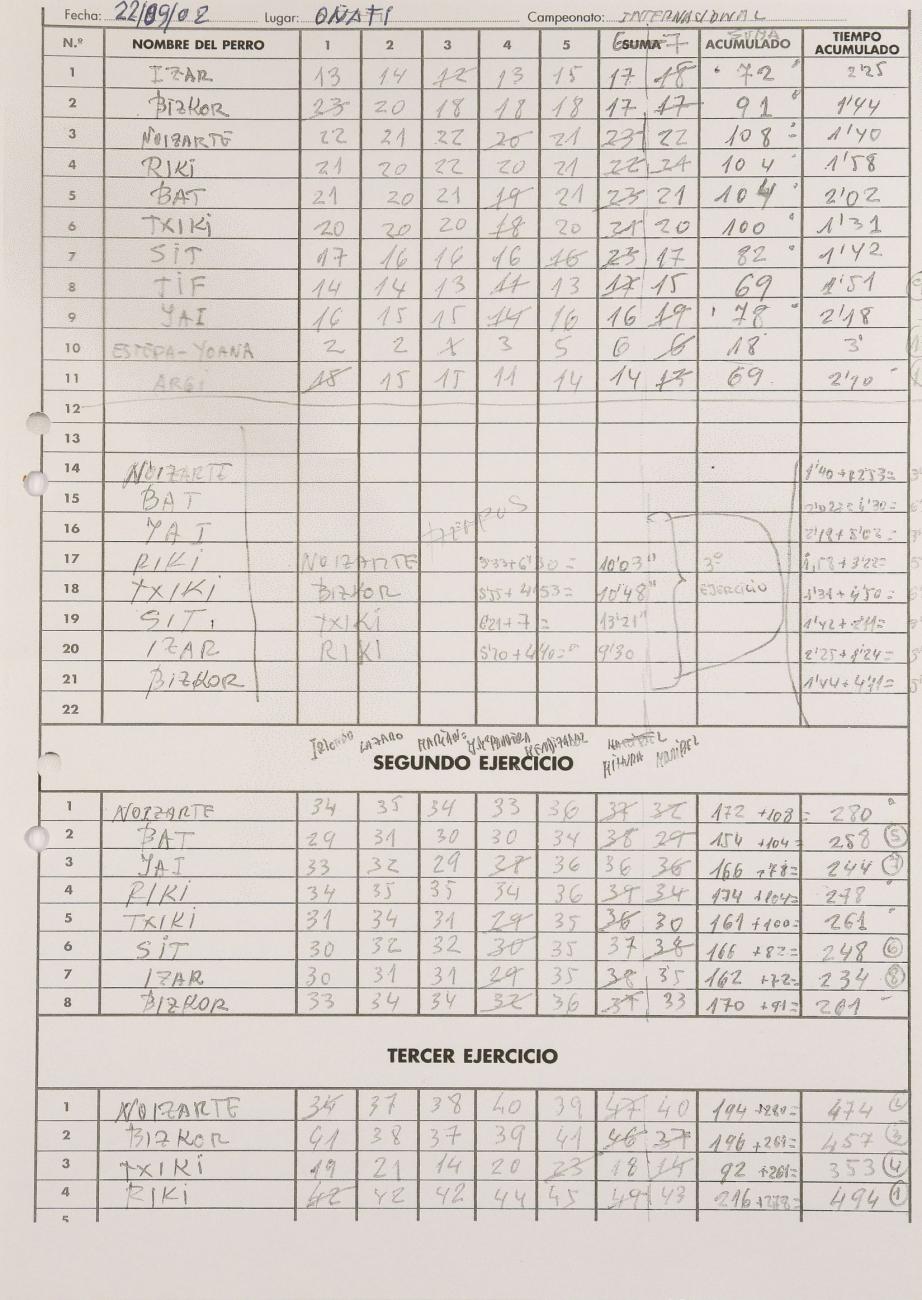 Fecha: 22/09/02 Lugar: OÑATI Campeonato: INTERNASIONAL
N.º NOMBRE DEL PERRO 1 2 3 4 5 6 SUMA 7 SUMA ACUMULADO TIEMPO ACUMULADO
1 IZAR 13 14 12 13 15 17 18 72 2'25
2 BIZKOR 23 20 18 18 18 17 17 91 1'44
3 NOIZARTE 22 21 22 20 21 23 22 108 1'40
4 RIKI 21 20 22 20 21 22 21 104 1'58
5 BAT 21 20 21 19 21 23 21 104 2'02
6 TXIKI 20 20 20 18 20 21 20 100 1'31
7 SIT 17 16 16 16 16 23 17 82 1'42
8 TIF 14 14 13 11 13 17 15 69 1'51
9 YAI 16 15 15 14 16 16 19 78 2'18
10 ESTEPA-YOANA 2 2 X 3 5 6 6 18 3'
11 ARGI 18 15 15 11 14 14 13 69 2'10
12
13
14 NOIZARTE
15 BAT
16 YAI
17 RIKI NOIZARTE 10'03" 3º
18 TXIKI BIZKOR 5'55+4'53= 10'48" EJERCICIO
19 SIT 6'21+7= 13'21"
TXIKI
20 IZAR RIKI 5'10+4'40= 9'30
21 BIZKOR
22
LAZARO
SEGUNDO EJERCICIO
1 NOIZARTE 34 35 34 33 36 37 32 172 +108= 280
2 BAT 29 31 30 30 34 38 29 154 +104= 258 5
3 YAI 33 32 29 28 36 36 36 166 +78= 244 7
4 RIKI 34 35 35 34 36 39 34 174 +104= 278
5 TXIKI 31 34 31 29 35 36 30 161 +100= 261
6 SIT 30 32 32 30 35 37 38 166 +82= 248 6
7 IZAR 30 31 31 29 35 38 35 162 +72= 234 8
8 BIZKOR 33 34 34 32 36 37 33 170 +91= 261
TERCER EJERCICIO
1 NOIZARTE 34 37 38 40 39 47 40 194 +280= 474 2
2 BIZKOR 41 38 37 39 41 46 37 196 +261= 457 3
3 TXIKI 19 21 14 20 23 18 14 92 +261= 353 4
4 RIKI 42 42 42 44 45 49 43 216 +278= 494 1
5